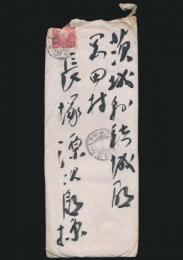 茨城縣結城郡
岡田村
長塚源次郎様